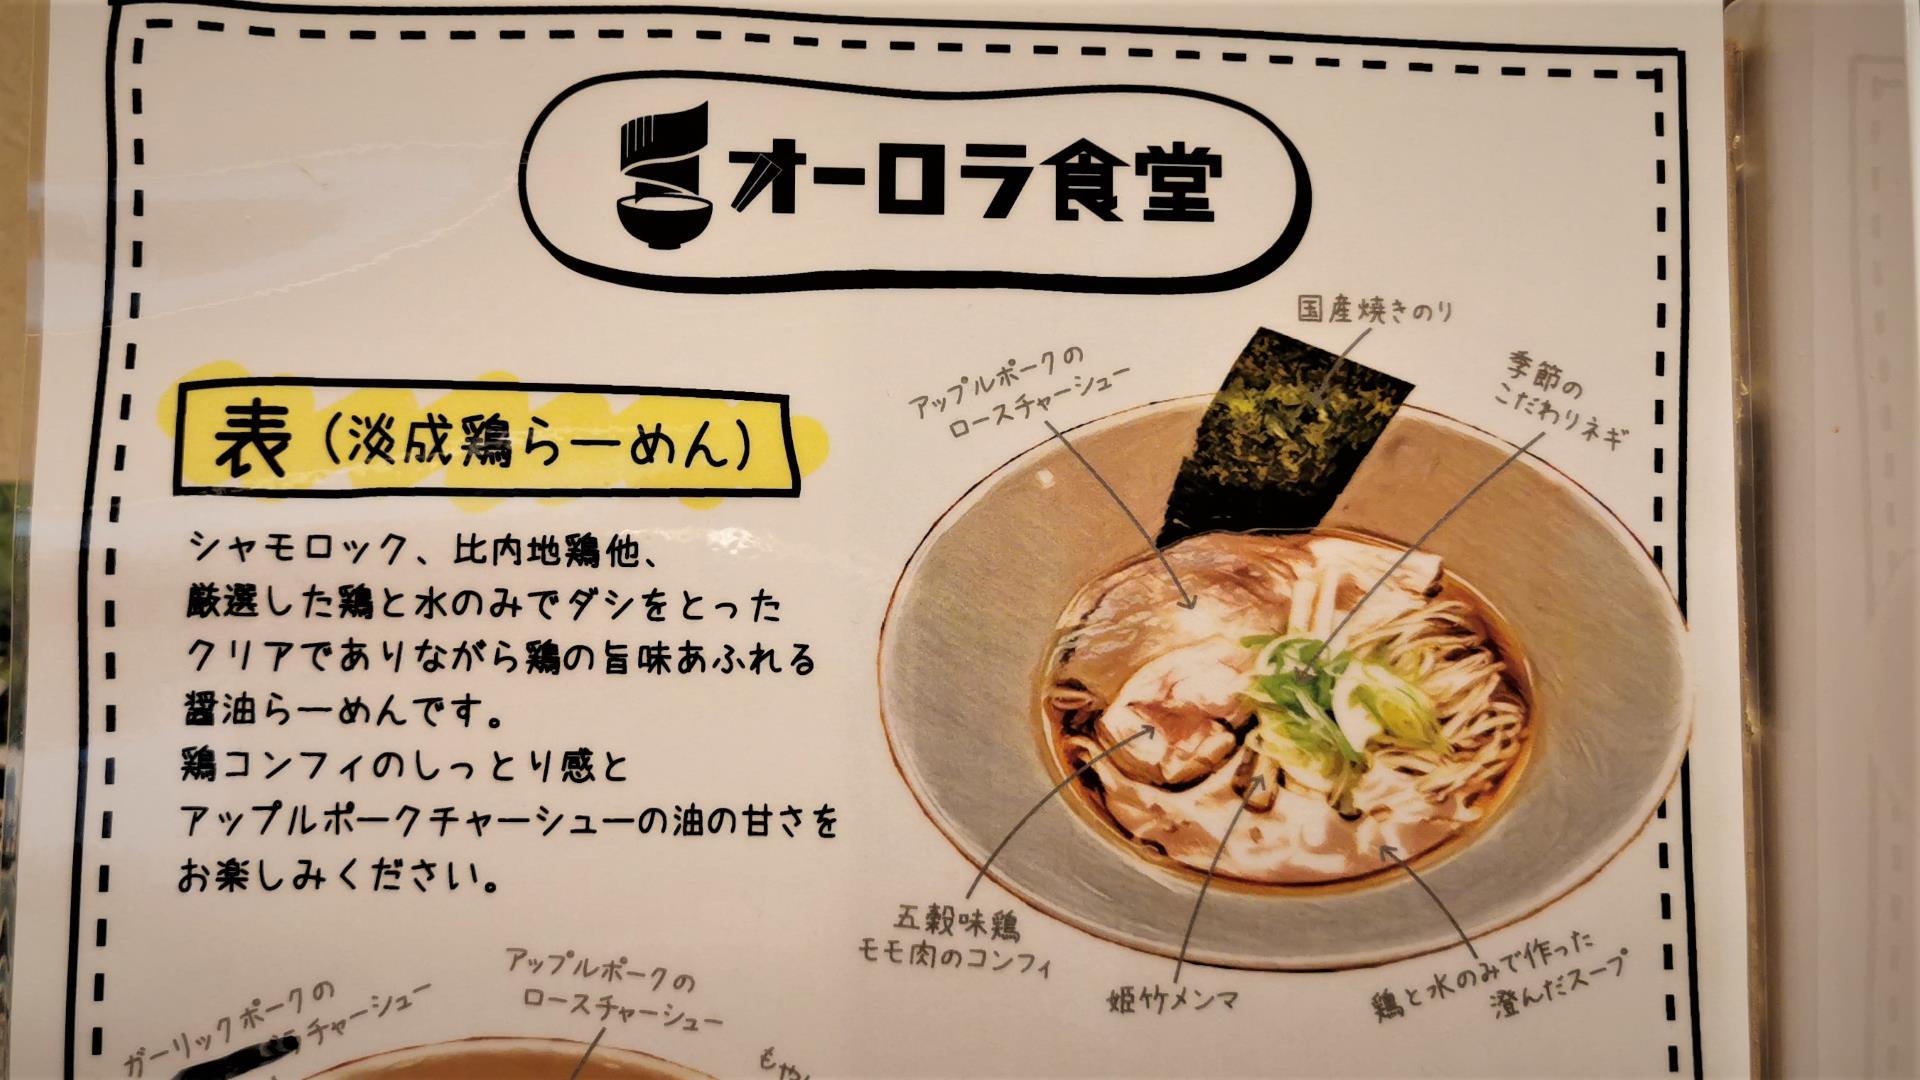 オーロラ食堂
国産焼きのり
アップルポークの
ロースチャーシュー
季節の
こだわりネギ
表（淡成鶏らーめん）
シャモロック、比内地鶏他、
厳選した鶏と水のみでダシをとった
クリアでありながら鶏の旨味あふれる
醤油らーめんです。
鶏コンフィのしっとり感と
アップルポークチャーシューの油の甘さを
お楽しみください。
五穀味鶏
モモ肉のコンフィ
姫竹メンマ
鶏と水のみで作った
澄んだスープ
ガーリックポークの
バラチャーシュー
アップルポークの
ロースチャーシュー